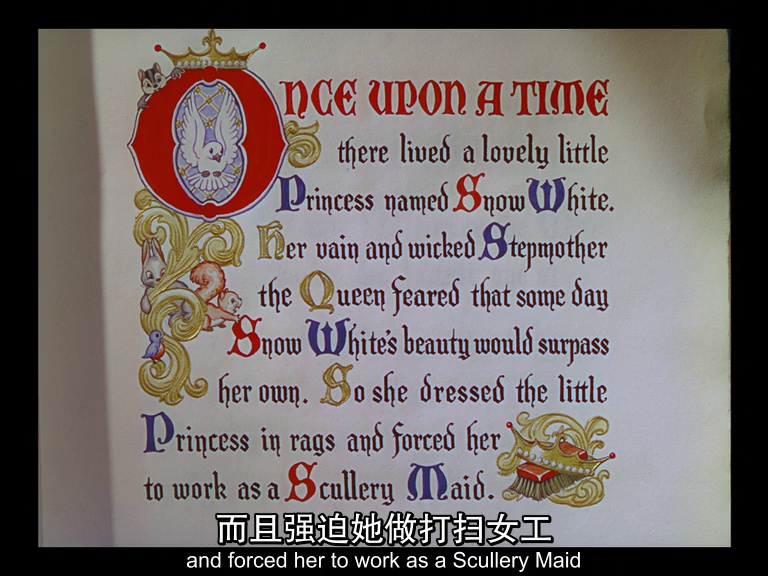 ONCE UPON A TIME
there lived a lovely little
Princess named Snow White.
Her vain and wicked Stepmother
the Queen feared that some day
Snow White's beauty would surpass
her own. So she dressed the little
Princess in rags and forced her
to work as a Scullery Maid.
而且强迫她做打扫女工
and forced her to work as a Scullery Maid